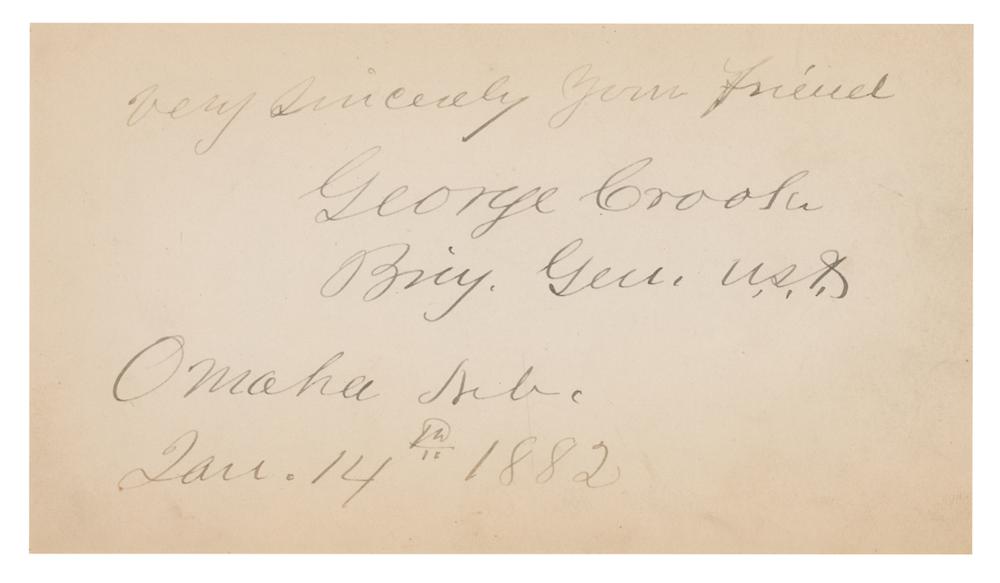 very sincerely your friend
George Crook
Brig. Gen. U.S.A.
Omaha Neb.
Jan. 14th 1882